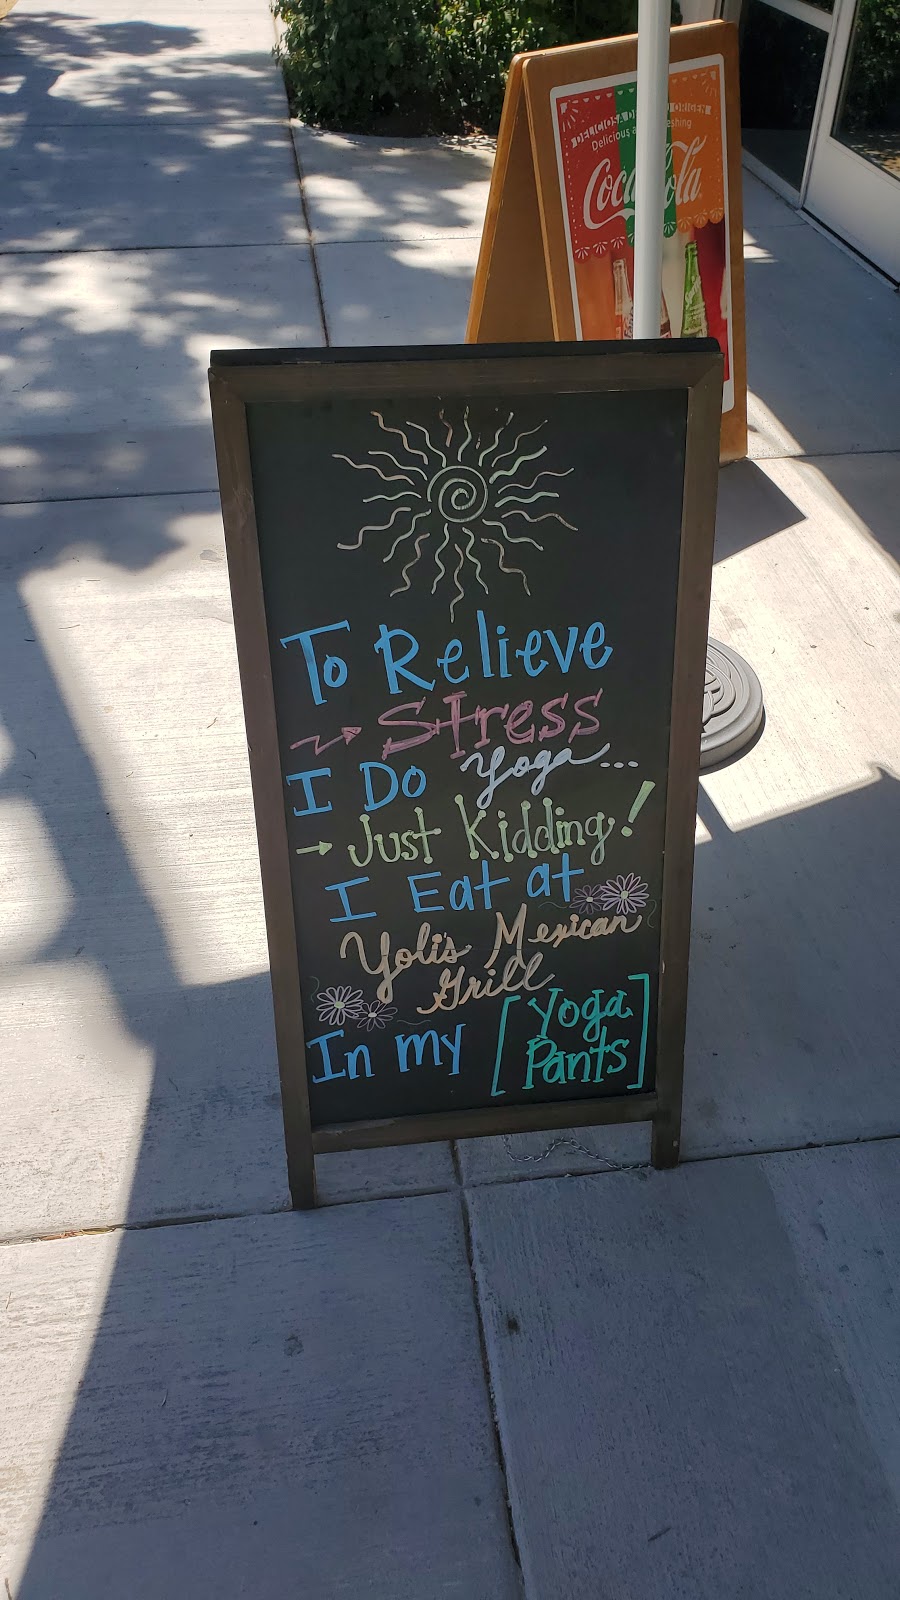 DELICIOSA DE ORIGEN
Delicious
Coca Cola
To Relieve
Stress
I Do Yoga...
Just Kidding!
I Eat at
Yoli's Mexican
Grill
In my [Yoga
Pants]